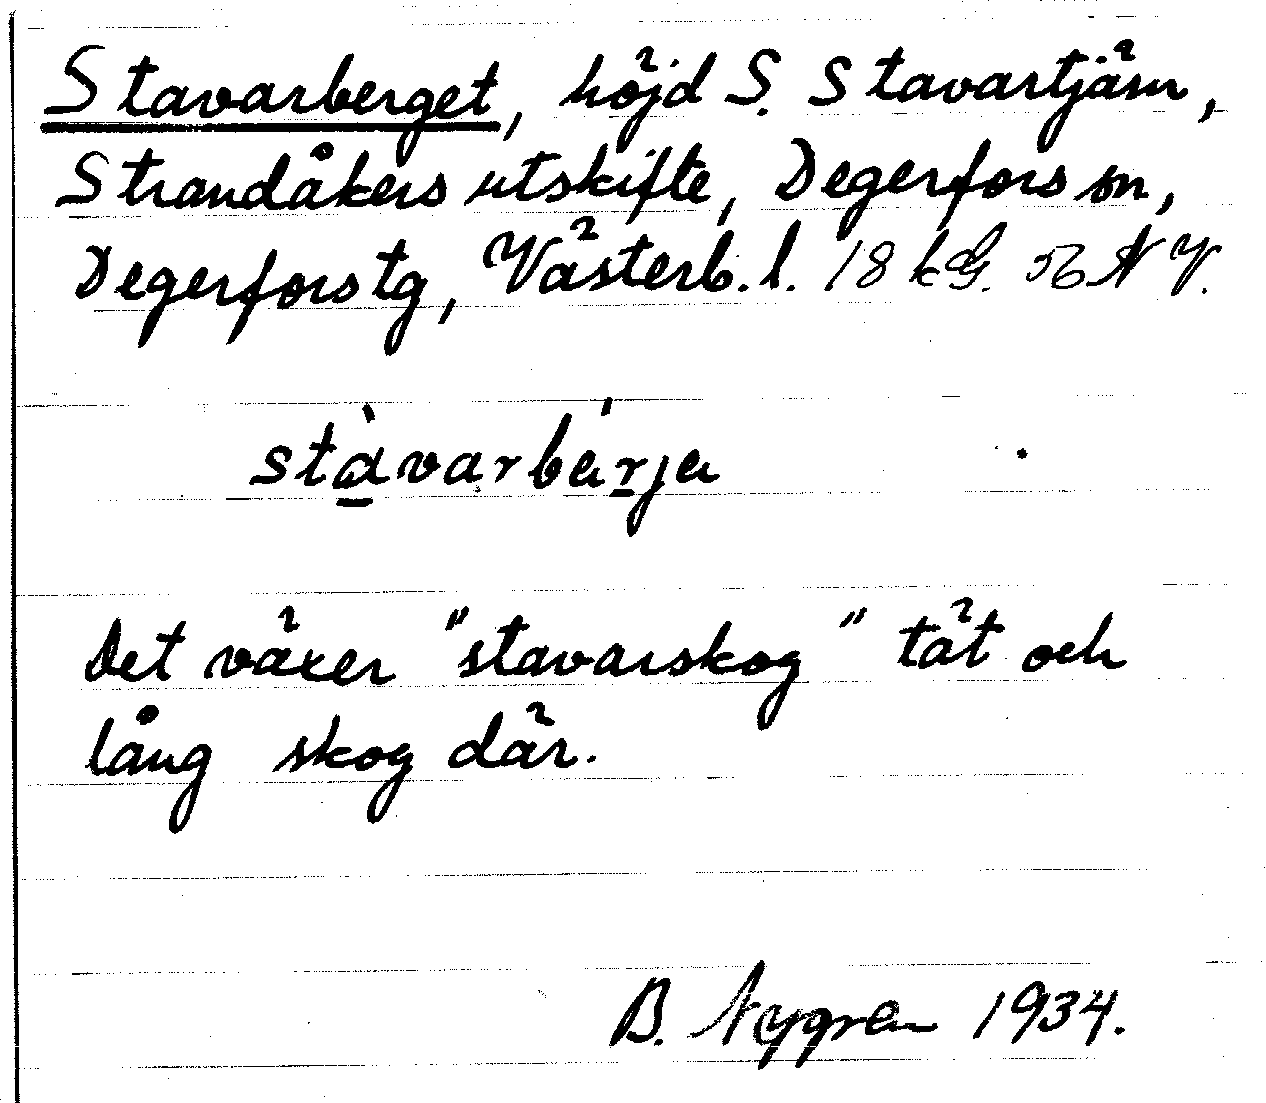 Stavarberget, höjd S. Stavartjärn,
Strandåkers utskifte, Degerfors sn,
Degerfors tg, Västerb. l. 18 kG. 56 N V.
stàvarbárja
Det växer "stavarskog" tät och
lång skog där.
B. Nygren 1934.